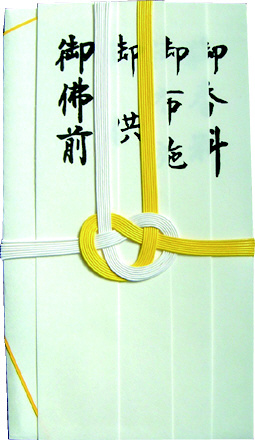 御 料
御布施
御供
御佛前